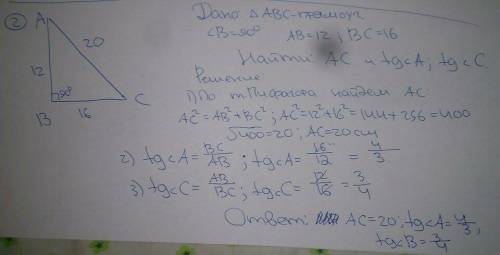 ②
A
20
12
90°
B
16
C
Дано △ABC-прямоуг
∠B=90° AB=12; BC=16
Найти: AC и tg∠A; tg∠C
Решение
1) По т. Пифагора найдем AC
AC²=AB²+BC²; AC²=12²+16²=144+256=400
√400=20; AC=20см
2) tg∠A=BC/AB; tg∠A=16/12=4/3
3) tg∠C=AB/BC; tg∠C=12/16=3/4
Ответ: AC=20; tg∠A=4/3,
tg∠B=3/4